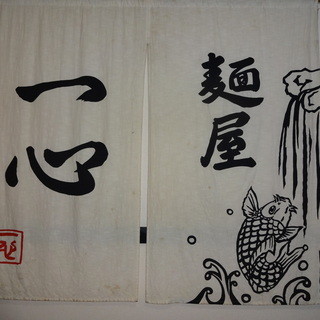 麺屋
一心